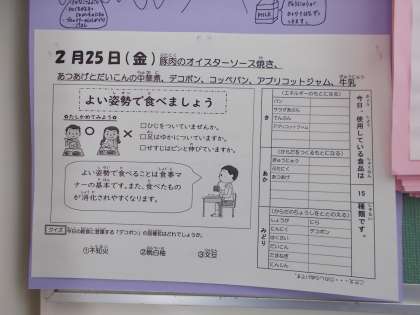 2月25日(金) 豚肉のオイスターソース焼き、
あつあげとだいこんの中華煮、デコポン、コッペパン、アプリコットジャム、牛乳
よい姿勢で食べましょう
●たしかめてみよう●
□ひじをついていませんか。
□はなかについていますか。
□せすじはピンと伸びていますか。
よい姿勢で食べることは食事マ
ナーの基本です。また、食べたもの
が消化されやすくなります。
クイズ
①不知火
②桃白柚
③文旦
今日、使用している食品は 15 種類です。
き
(エネルギーのもとになる)
パン
でんぷん
アプリコットジャム
あか
(からだをつくるもとになる)
ぎゅうにゅう
ぶたにく
あつあげ
みどり
(からだのちょうしをととのえる)
しょうが
にら
にんにく
デコポン
はくさい
だいこん
たまねぎ
にんじん
MILK